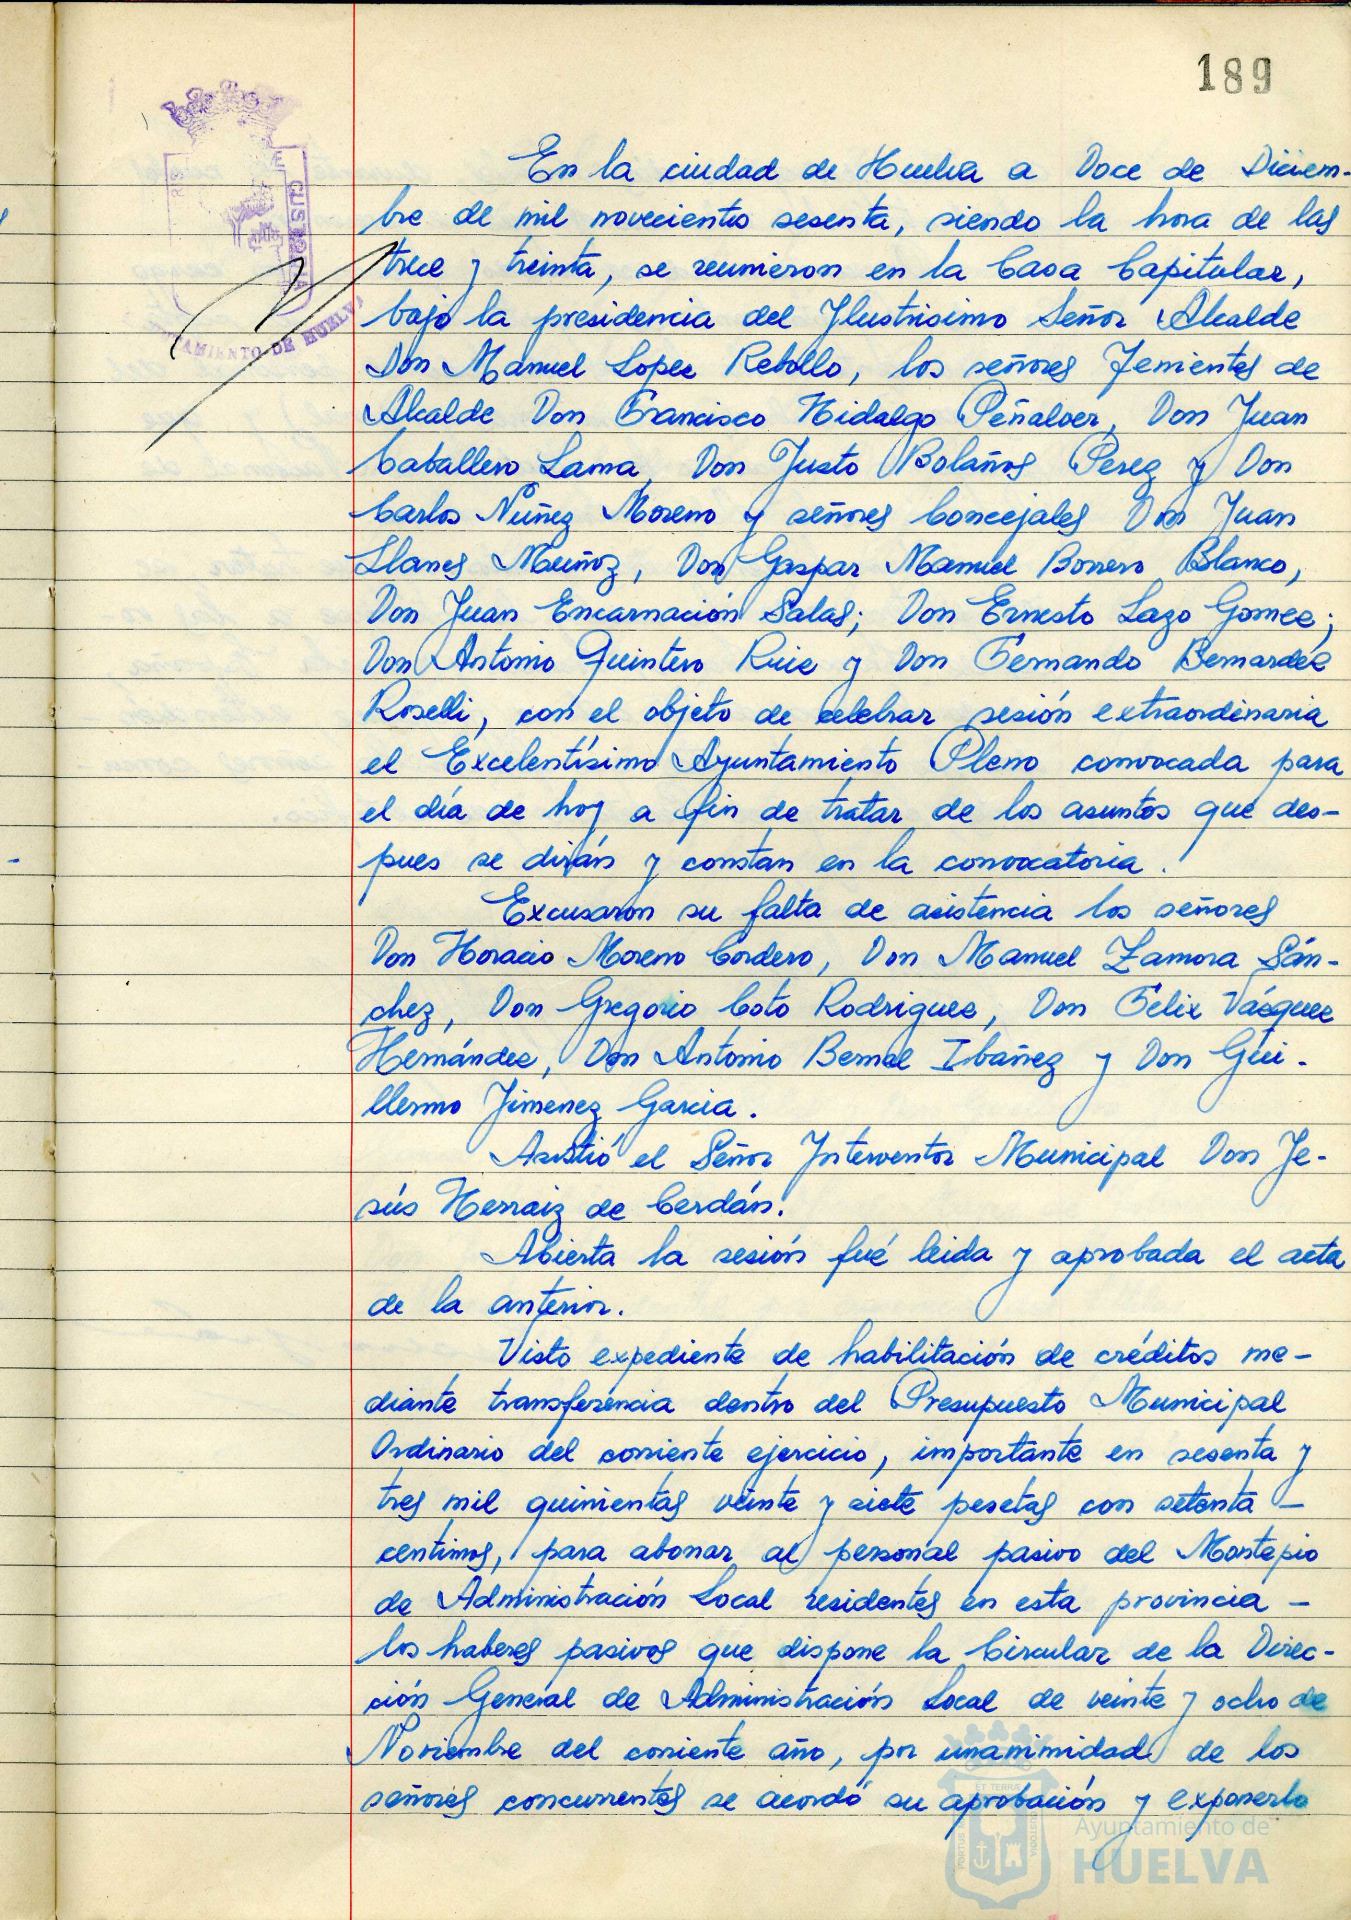 189
En la ciudad de Huelva a Doce de Diciem-
bre de mil novecientos sesenta, siendo la hora de las
trece y treinta, se reunieron en la Casa Capitular,
bajo la presidencia del Ilustrisimo Señor Alcalde
Don Manuel Lopez Rebollo, los señores Tenientes de
Alcalde Don Francisco Hidalgo Peñalver, Don Juan
Caballero Lama, Don Justo Bolaños Perez y Don
Carlos Núñez Moreno y señores Concejales Don Juan
Llanes Muñoz, Don Gaspar Manuel Borrero Blanco,
Don Juan Encarnación Salas; Don Ernesto Lazo Gomez;
Don Antonio Quintero Ruiz y Don Fernando Bernardez
Roselli, con el objeto de celebrar sesión extraordinaria
el Excelentísimo Ayuntamiento Pleno convocada para
el día de hoy a fin de tratar de los asuntos que des-
pues se dirán y constan en la convocatoria.
Excusaron su falta de asistencia los señores
Don Horacio Moreno Cordero, Don Manuel Zamora Sán-
chez, Don Gregorio Coto Rodriguez, Don Felix Vázquez
Hernández, Don Antonio Bernal Ibáñez y Don Gui-
llermo Jimenez Garcia.
Asistió el Señor Interventor Municipal Don Je-
sús Herraiz de Cerdán.
Abierta la sesión fué leida y aprobada el acta
de la anterior.
Visto expediente de habilitación de créditos me-
diante transferencia dentro del Presupuesto Municipal
Ordinario del corriente ejercicio, importante en sesenta y
tres mil quinientas veinte y siete pesetas con setenta -
centimos, para abonar al personal pasivo del Montepio
de Administración Local residentes en esta provincia -
los haberes pasivos que dispone la Circular de la Direc-
ción General de Administración Local de veinte y ocho de
Noviembre del corriente año, por unanimidad de los
señores concurrentes se acordó su aprobación y exponerlo
CUSTODIA
AYUNTAMIENTO DE HUELVA
Ayuntamiento de
HUELVA